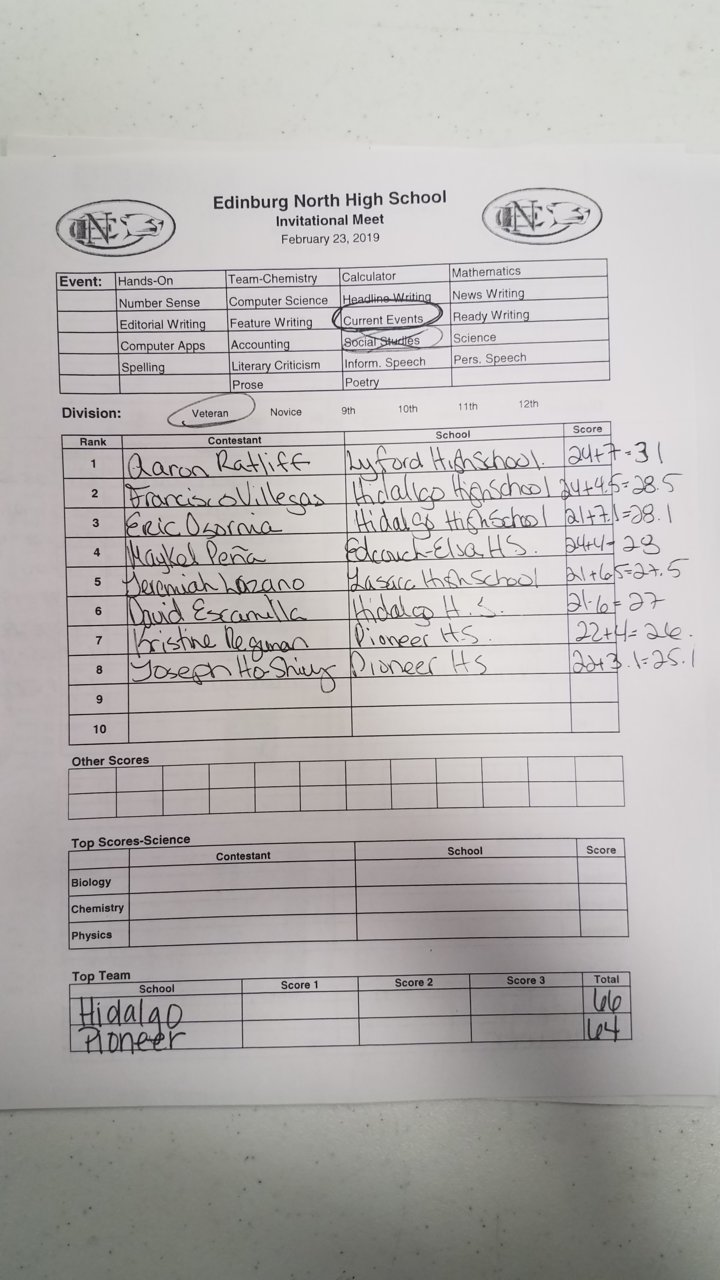 Edinburg North High School
Invitational Meet
February 23, 2019
Event: Hands-On Team-Chemistry Calculator Mathematics
Number Sense Computer Science Headline Writing News Writing
Editorial Writing Feature Writing Current Events Ready Writing
Computer Apps Accounting Social Studies Science
Spelling Literary Criticism Inform. Speech Pers. Speech
Prose Poetry
Division: Veteran Novice 9th 10th 11th 12th
Rank Contestant School Score
1 Aaron Ratliff Lyford High School. 24+7=31
2 Francisco Villegas Hidalgo High School 24+4.5=28.5
3 Eric Osornia Hidalgo High School 21+7.1=28.1
4 Maykol Peña Edcouch-Elsa H.S. 24+4= 28
5 Jeremiah Lozano Lasara High School 21+6.5=27.5
6 David Escamilla Hidalgo H.S. 21.6= 27
7 Kristine Pioneer H.S. 22+4= 26.
8 Joseph Pioneer HS 22+3.1=25.1
9
10
Other Scores
Top Scores-Science
Contestant School Score
Biology
Chemistry
Physics
Top Team
School Score 1 Score 2 Score 3 Total
Hidalgo 66
Pioneer 64